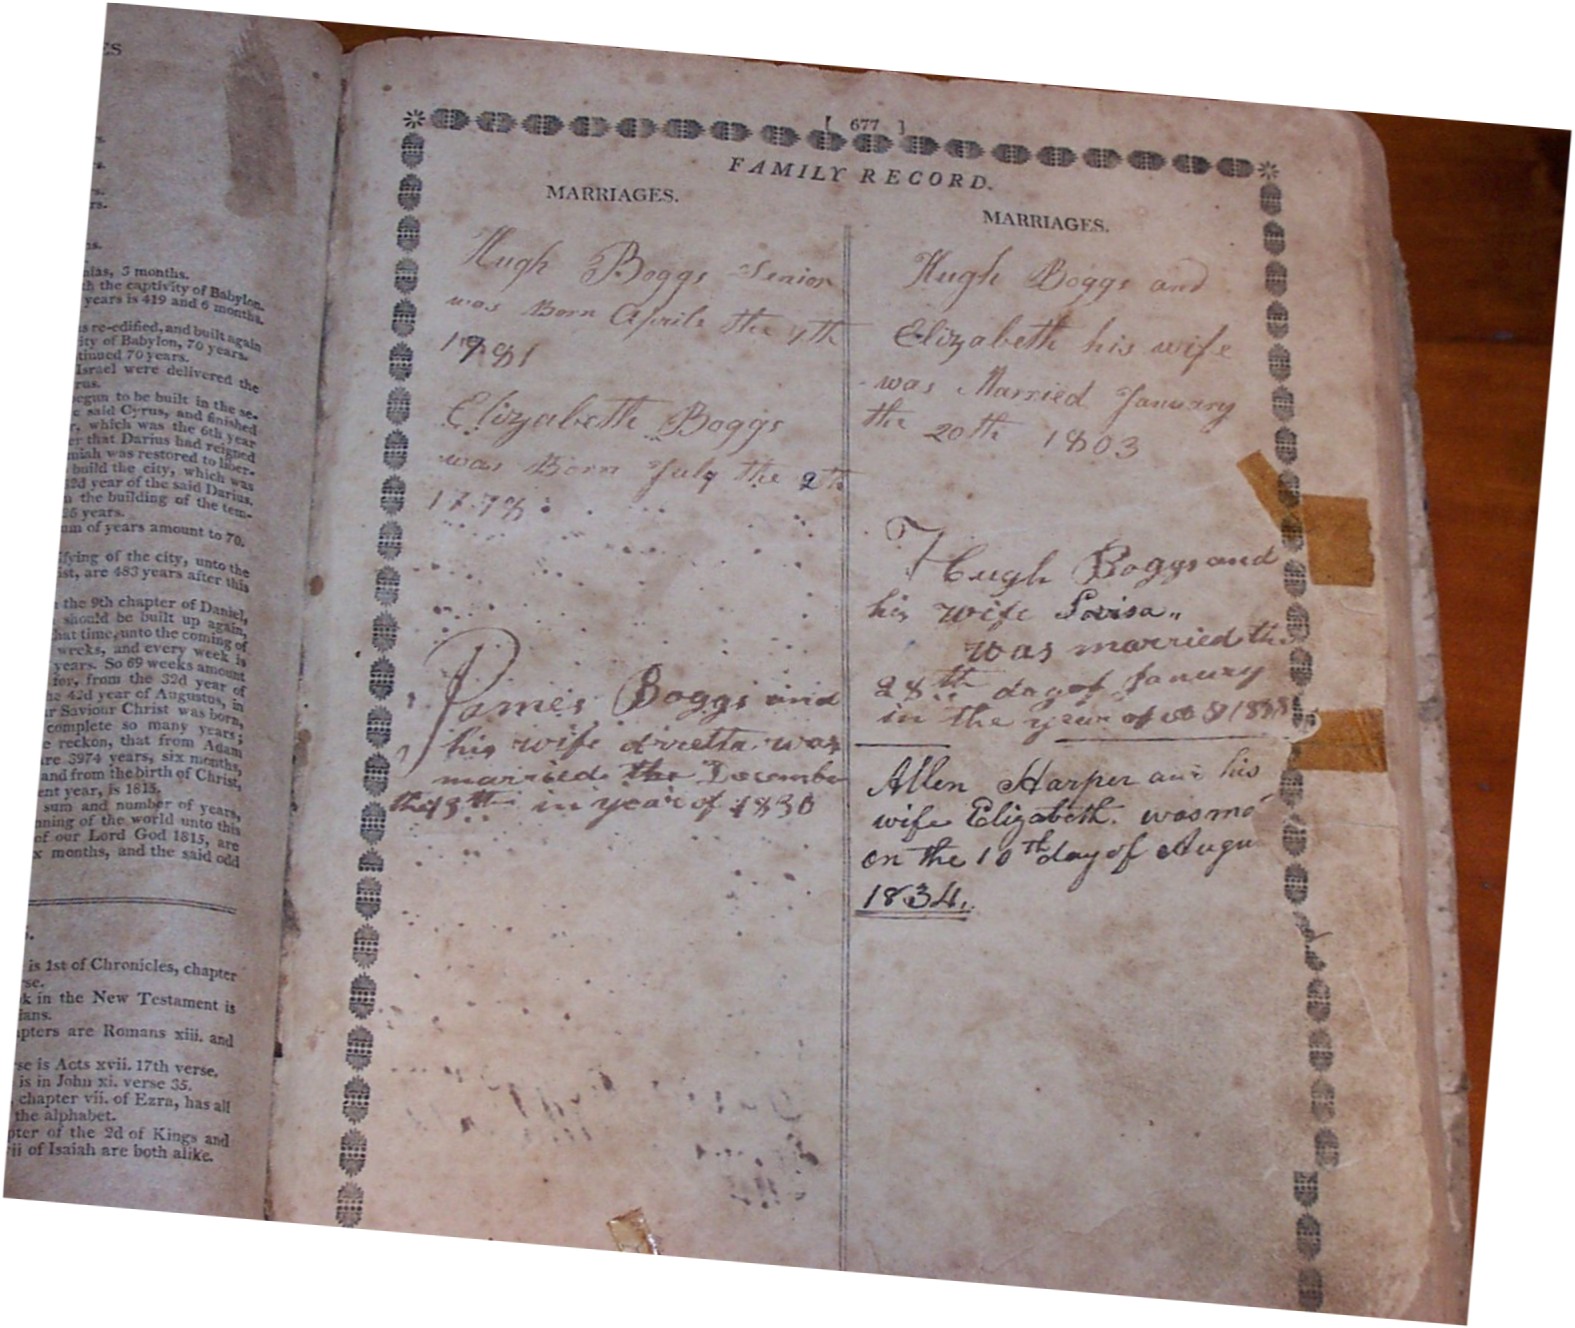 ES
rs.
rs.
ns.
nias, 3 months.
th the captivity of Babylon.
years is 419 and 6 months.
s re-edified, and built again
ity of Babylon, 70 years.
tinued 70 years.
Israel were delivered the
rus.
egun to be built in the se-
c said Cyrus, and finished
r, which was the 6th year
er that Darius had reigned
miah was restored to liber-
build the city, which was
2d year of the said Darius.
n the building of the tem-
25 years.
um of years amount to 70.
ifying of the city, unto the
ist, are 483 years after this
the 9th chapter of Daniel,
should be built up again,
hat time, unto the coming of
weeks, and every week is
years. So 69 weeks amount
for, from the 32d year of
he 42d year of Augustus, in
ur Saviour Christ was born,
complete so many years;
e reckon, that from Adam
re 3974 years, six months,
and from the birth of Christ,
ent year, is 1815.
sum and number of years,
nning of the world unto this
of our Lord God 1815, are
x months, and the said odd
is 1st of Chronicles, chapter
se.
k in the New Testament is
ians.
apters are Romans xiii. and
se is Acts xvii. 17th verse.
is in John xi. verse 35.
chapter vii. of Ezra, has all
the alphabet.
pter of the 2d of Kings and
ii of Isaiah are both alike.
[ 677 ]
FAMILY RECORD.
MARRIAGES.
Hugh Boggs Senior
was Born Aprile the 7th
1781
Elizabeth Boggs
was Born July the 2th
1778
James Boggs and
his wife was
married the December
the 13th in year of 1830
MARRIAGES.
Hugh Boggs and
Elizabeth his wife
was Married January
the 20th 1803
Hugh Boggs and
his wife Lovisa
was married the
28th day of Janury
in the year of
Allen Harper and his
wife Elizabeth. was ma
on the 10th day of Augu
1834.